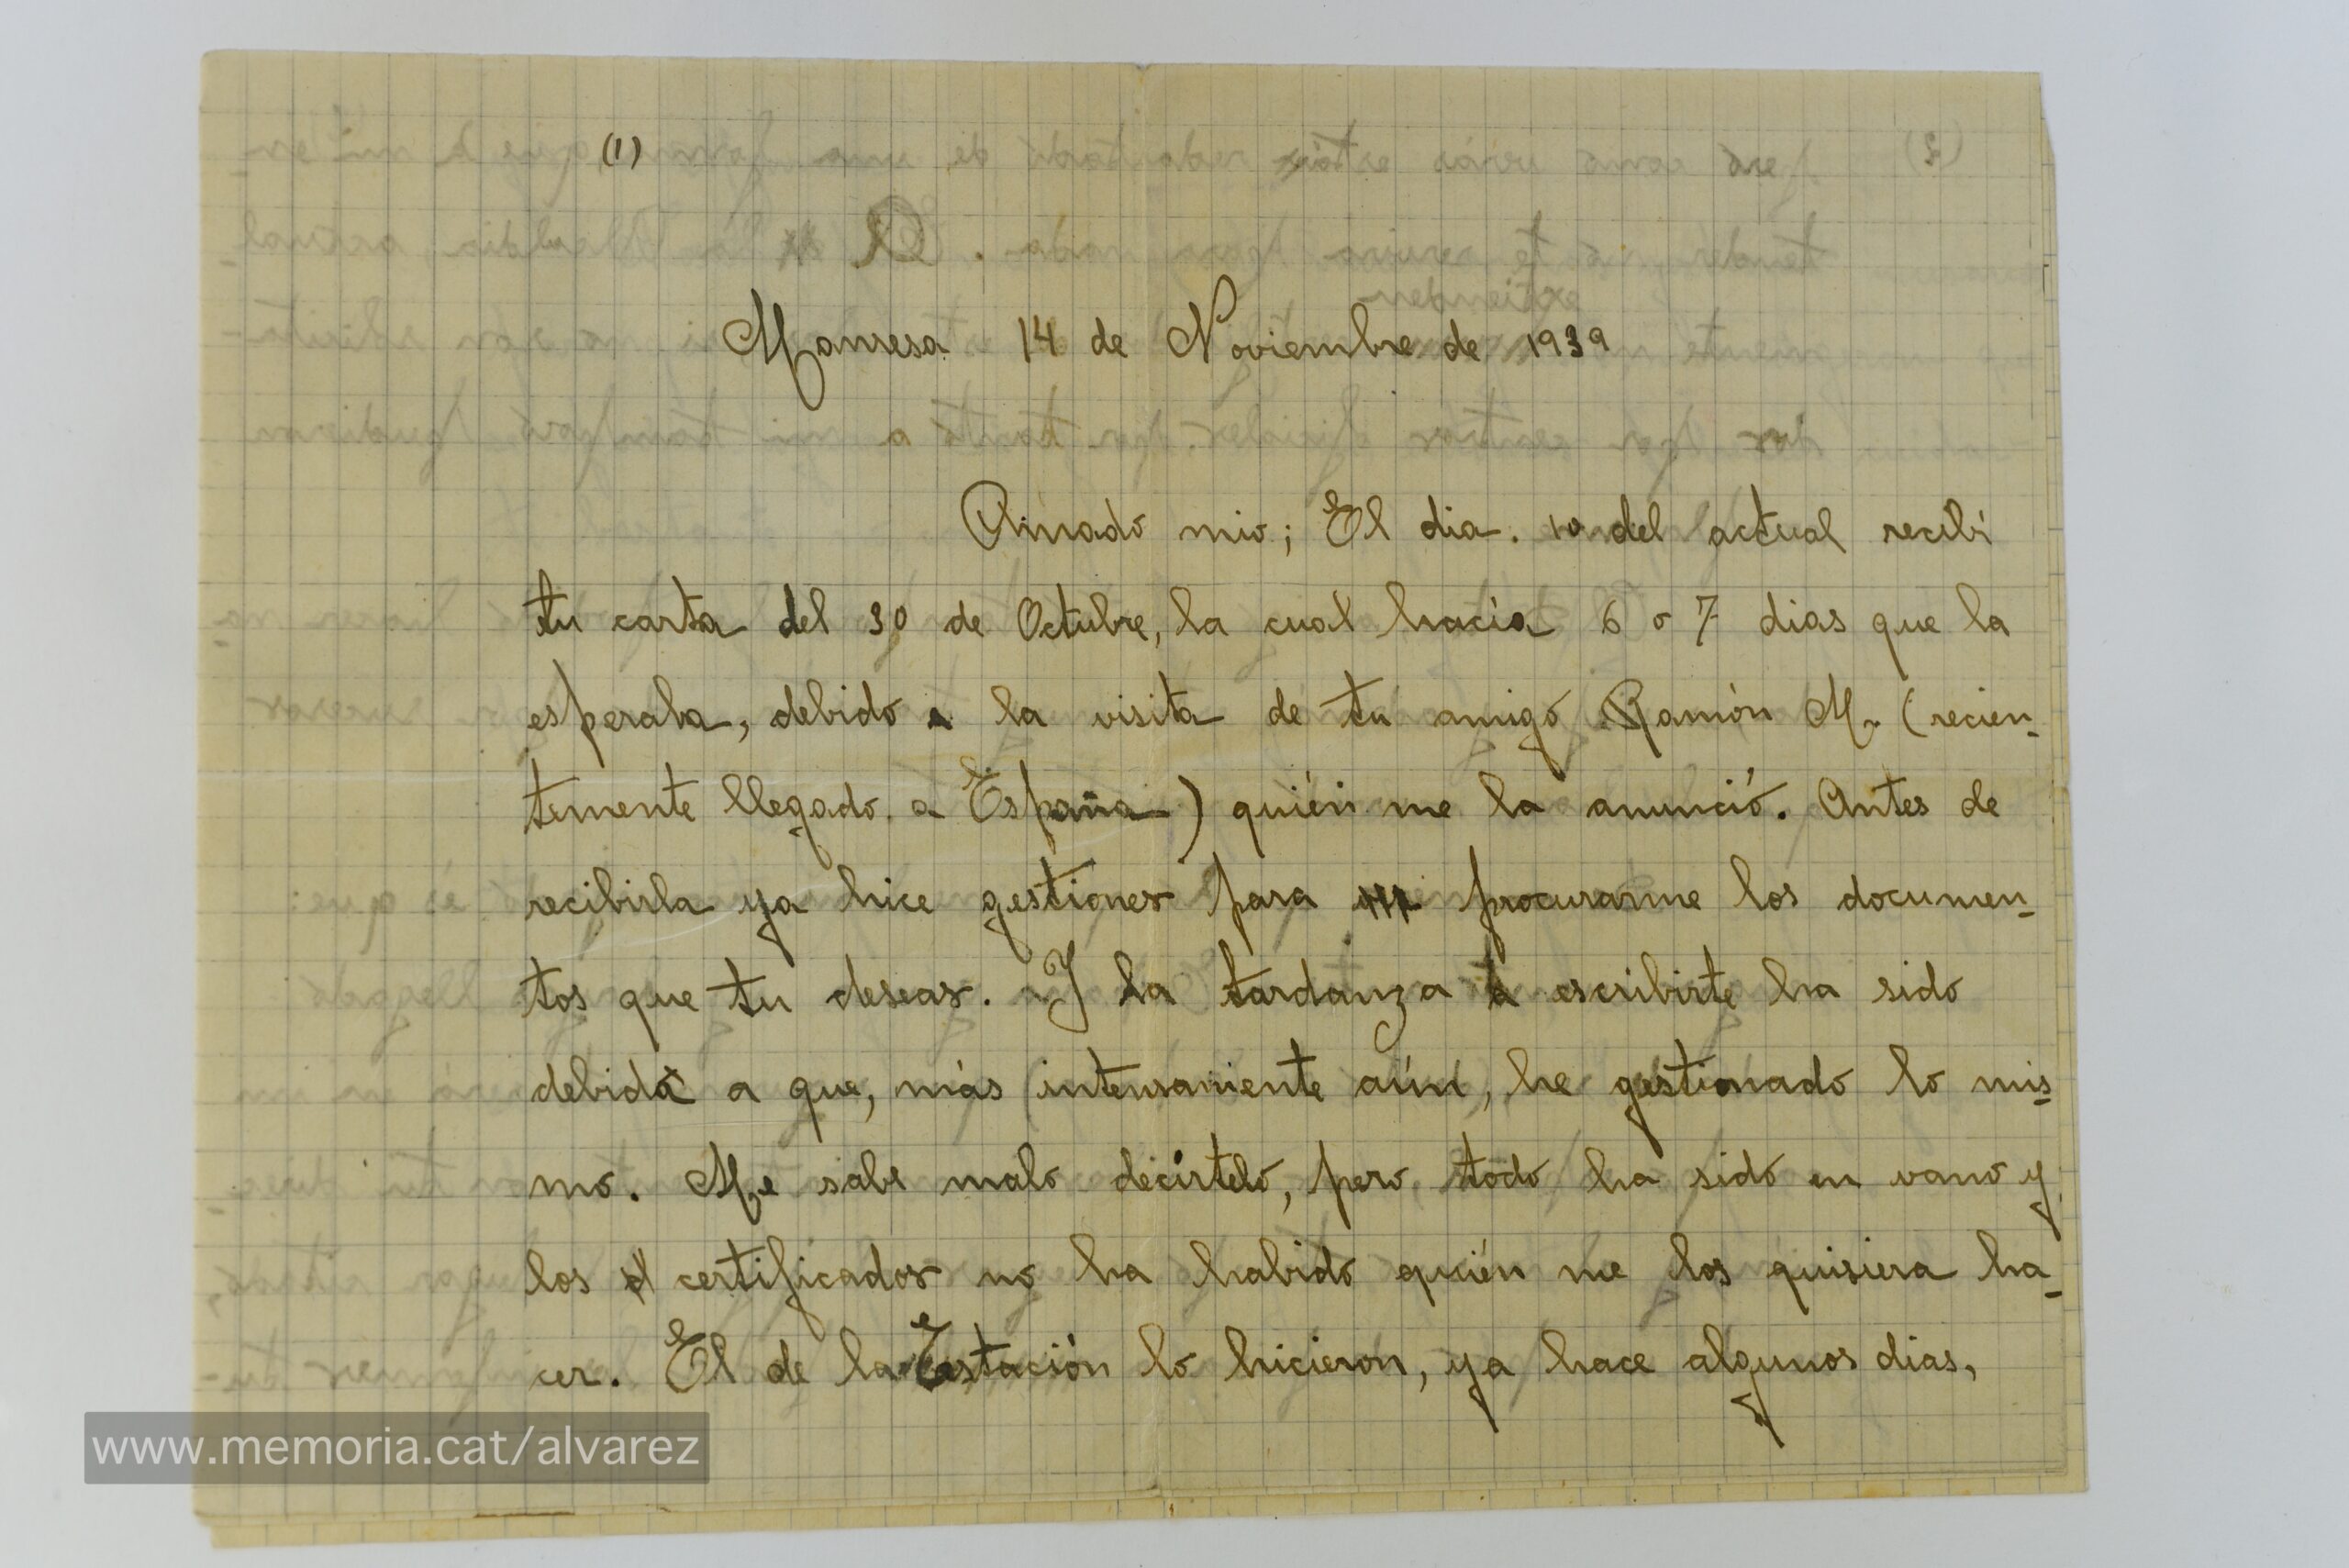 (1)
Manresa 14 de Noviembre de 1939
Amado mio; El dia. 10 del actual recibí
tu carta del 30 de Octubre, la cual hacía 6 o 7 dias que la
esperaba, debido a la visita de tu amigo Ramón M. (recien-
temente llegado a España) quién me la anunció. Antes de
recibirla ya hice gestiones para procurarme los documen-
tos que tu deseas. Y la tardanza a escribirte ha sido
debida a que, más intensamente aún, he gestionado lo mis-
mo. Me sabe malo decírtelo, pero todo ha sido en vano y
los certificados no ha habido quién me los quisiera ha-
cer. El de la Estación lo hicieron, ya hace algunos dias,
www.memoria.cat/alvarez